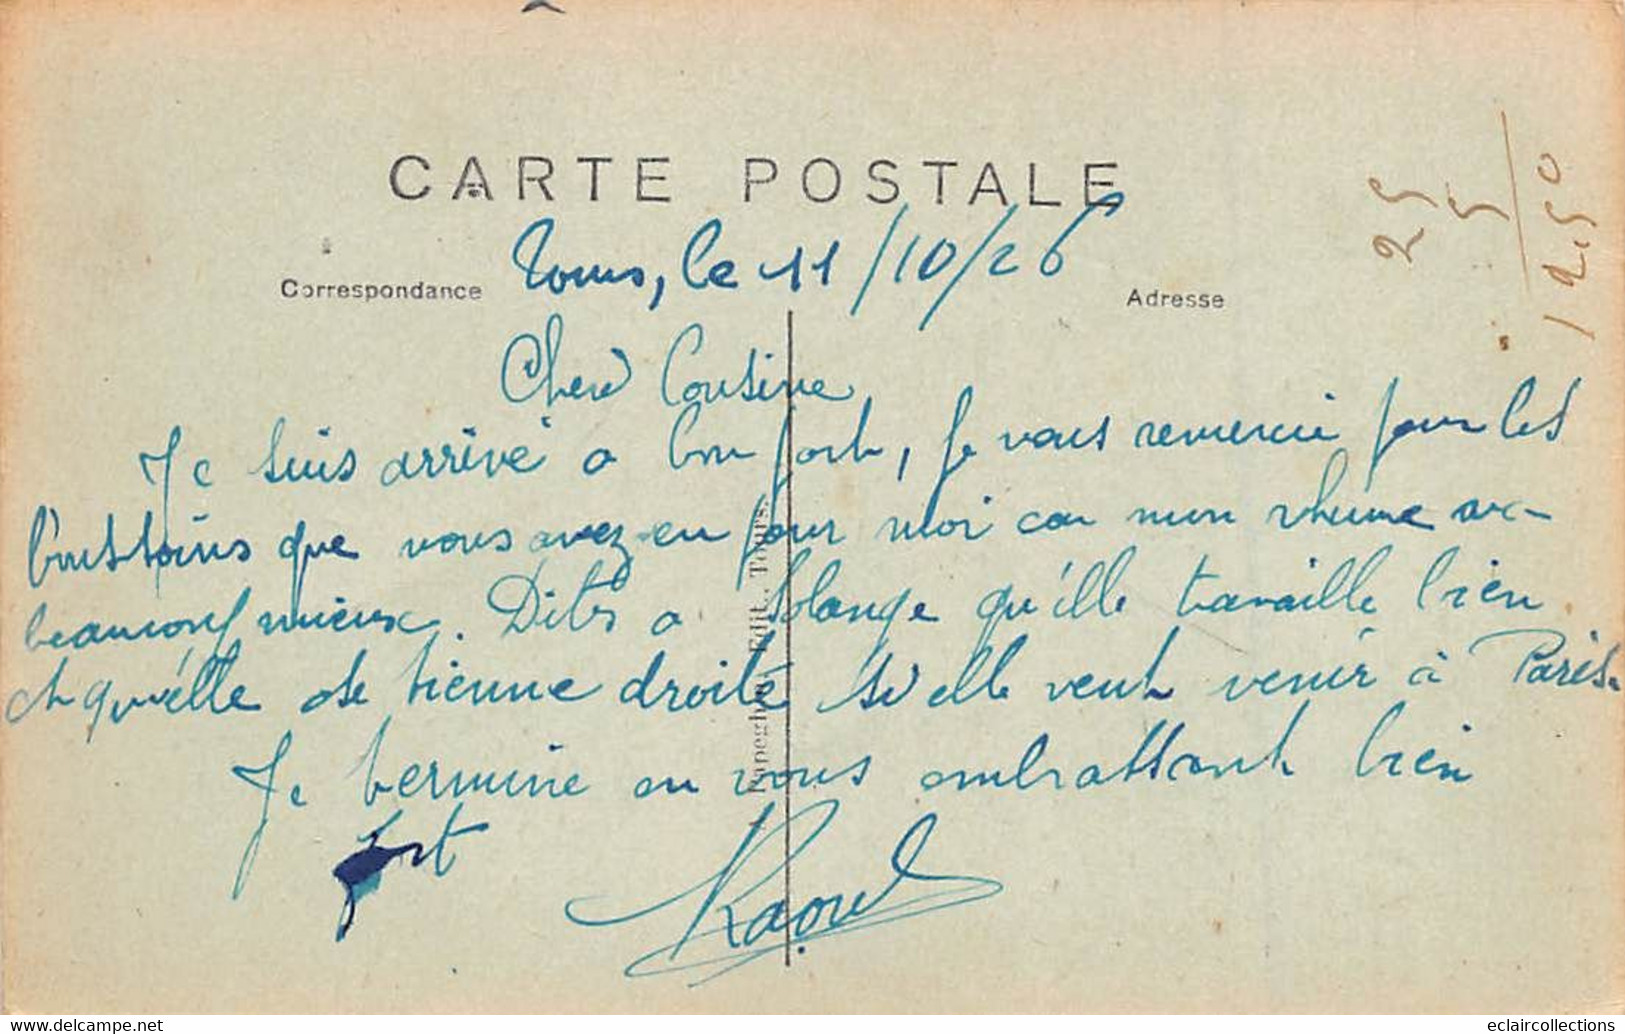 CARTE POSTALE
Correspondance
Tours, le 11/10/26
Adresse
Cher Cousine
Je suis arrivé a bon port, je vous remercie pour les
bons soins que vous avez eu pour moi car mon rhume va
beaucoup mieux. Dites a Solange qu'elle travaille bien
et qu'elle se tienne droite si elle veut venir à Paris.
Je termine en vous embrassant bien
fort
Raoul
Edit., Tours.
25
5
1250
eclaircollections
www.delcampe.net